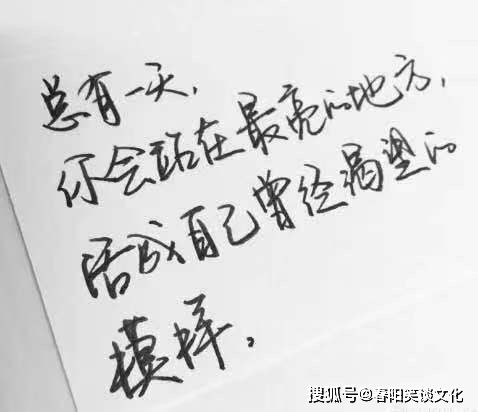 总有一天，
你会站在最亮的地方，
活成自己曾经渴望的
模样，
搜狐号@春阳笑谈文化